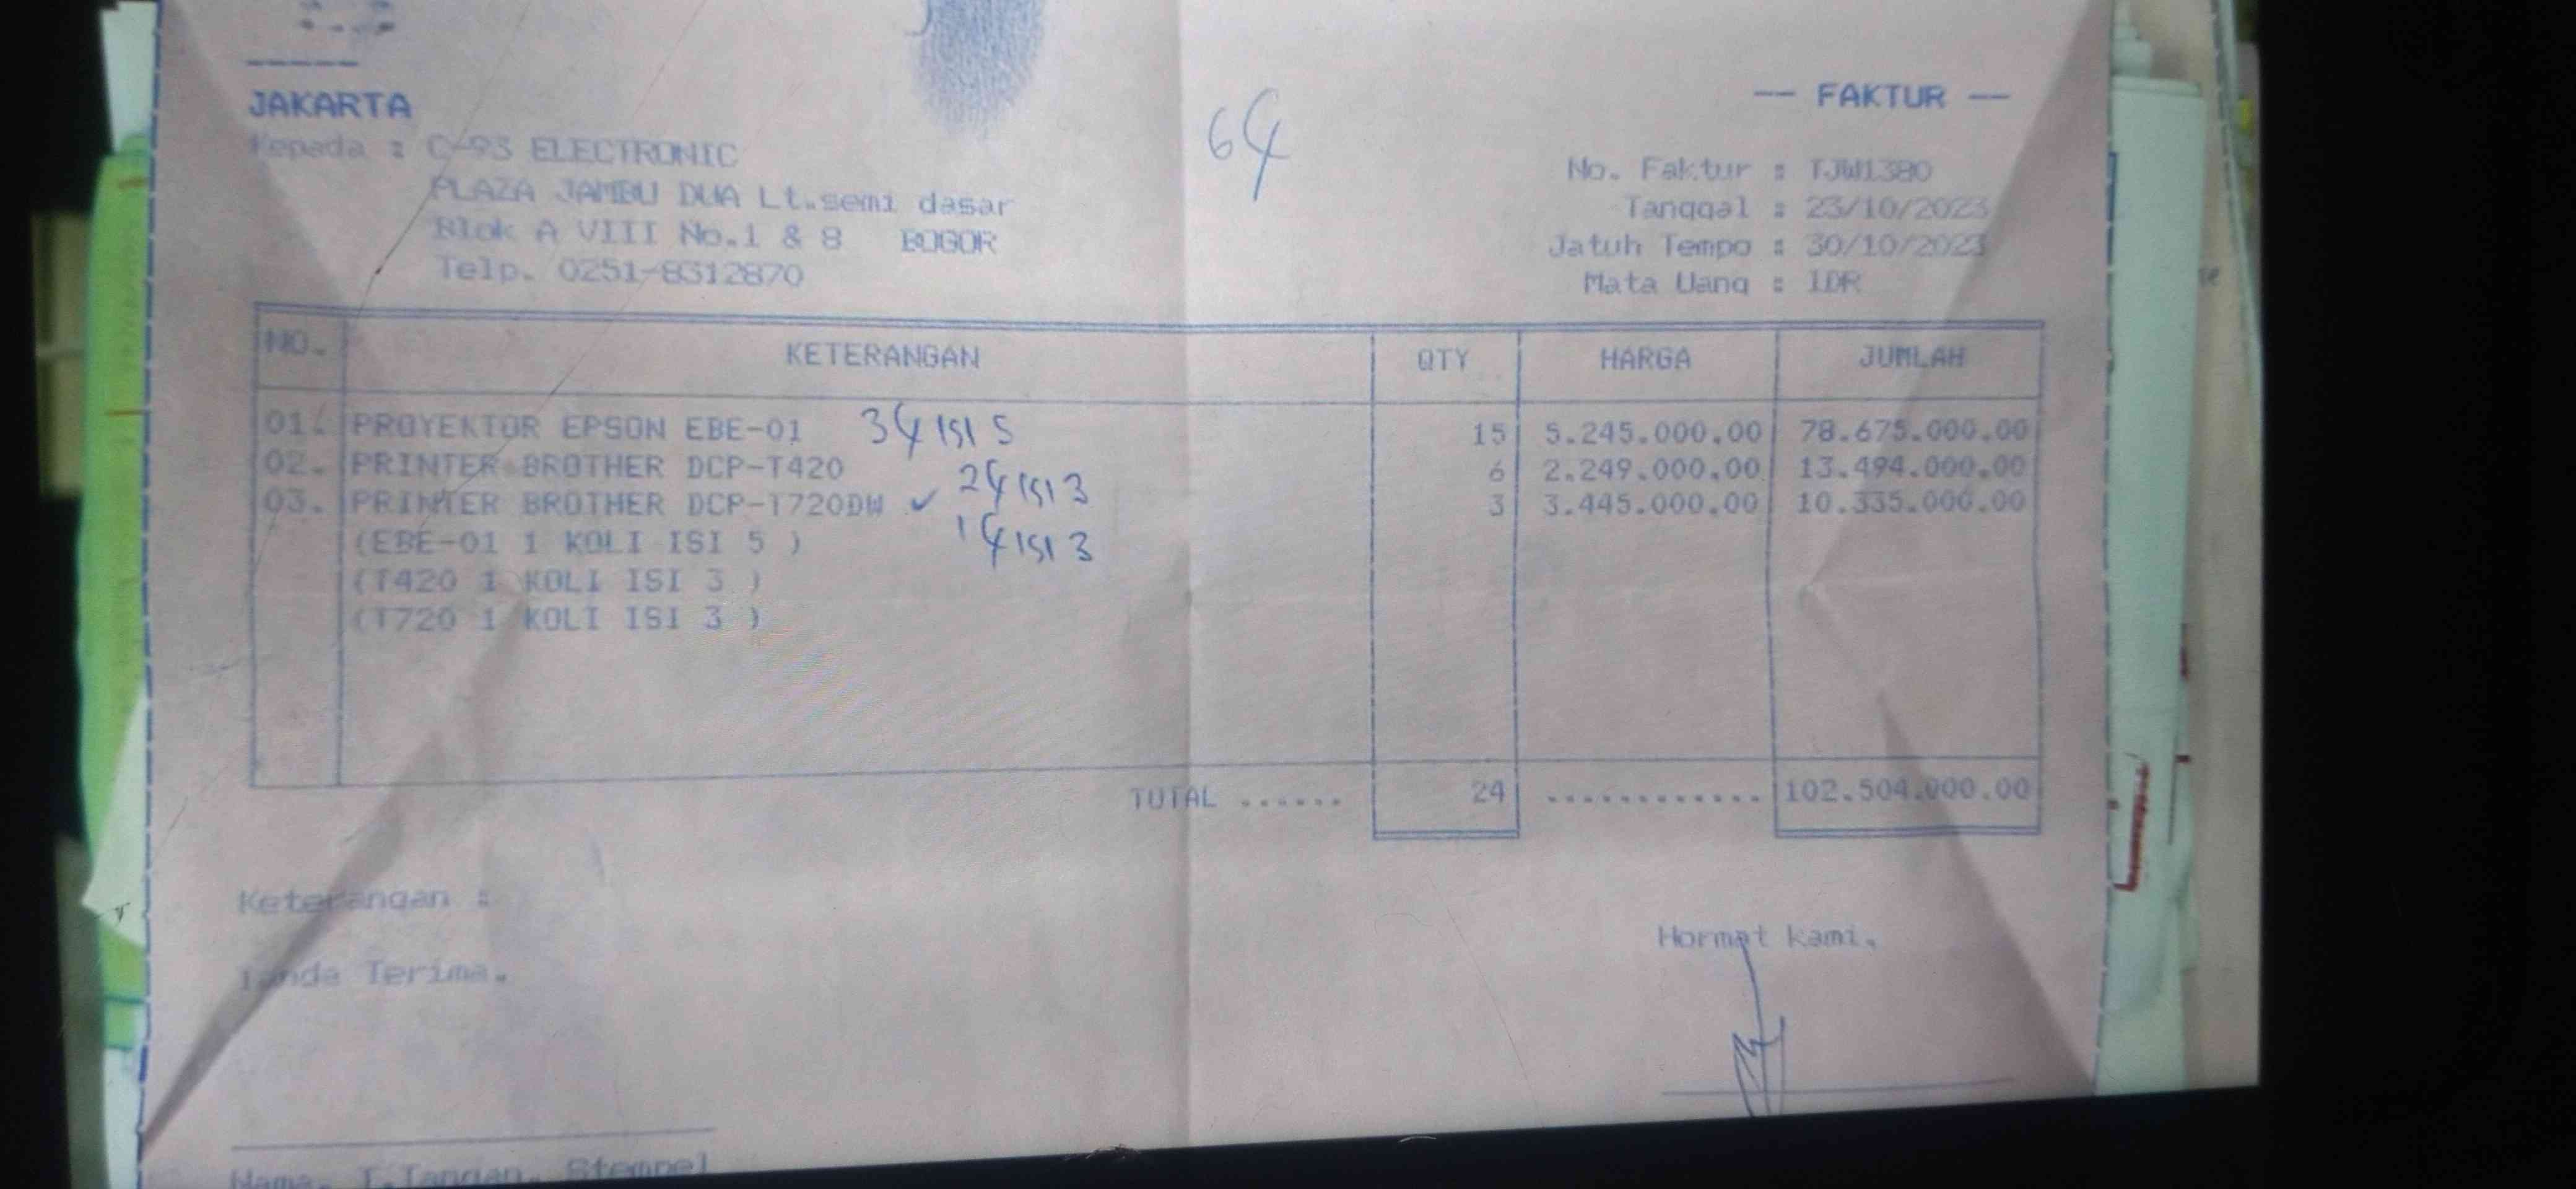 JAKARTA
-- FAKTUR --
Kepada : C-93 ELECTRONIC
PLAZA JAMBU DUA Lt.semi dasar
Blok A VIII No.1 & 8 BOGOR
Telp. 0251-8312870
64
No. Faktur : TJW1380
Tanggal : 23/10/2023
Jatuh Tempo : 30/10/2023
Mata Uang : IDR
NO. KETERANGAN QTY HARGA JUMLAH
01. PROYEKTOR EPSON EBE-01 34 ISI 5 15 5.245.000.00 78.675.000.00
02. PRINTER BROTHER DCP-T420 24 ISI 3 6 2.249.000.00 13.494.000.00
03. PRINTER BROTHER DCP-T720DW ✓ 14 ISI 3 3 3.445.000.00 10.335.000.00
(EBE-01 1 KOLI ISI 5 )
(T420 1 KOLI ISI 3 )
(T720 1 KOLI ISI 3 )
TOTAL ...... 24 ............ 102.504.000.00
Keterangan :
Tanda Terima.
Hormat kami.
Nama. T.Tangan. Stempel